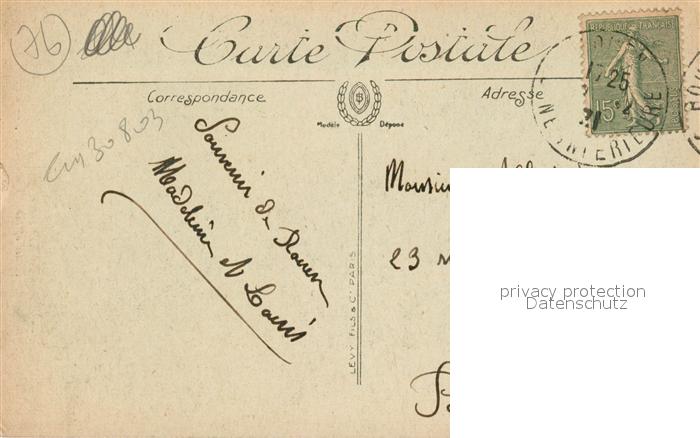 76
Carte Postale
Correspondance
Adresse
Modèle Déposé
RÉPUBLIQUE FRANÇAISE
15
17 25
NE INFERIEURE
Souvenir de Rouen
Madeleine et Louis
Monsieur
23
LEVY FILS & Cie PARIS
privacy protection
Datenschutz